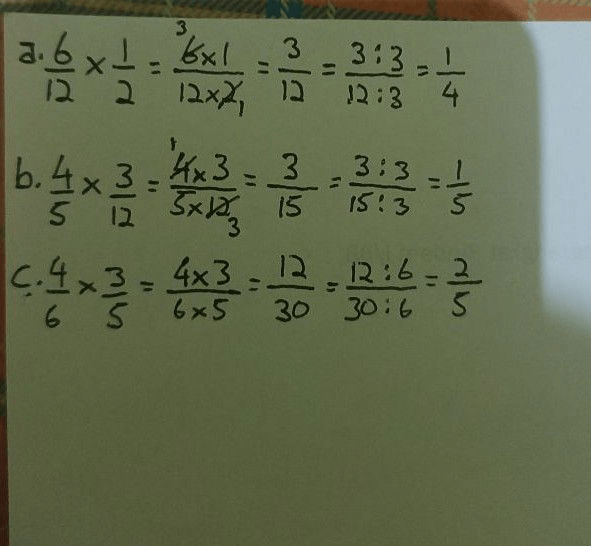 a. 6/12 × 1/2 = 3 6×1/12×2 1 = 3/12 = 3:3/12:3 = 1/4
b. 4/5 × 3/12 = 1 4×3/5×12 3 = 3/15 = 3:3/15:3 = 1/5
c. 4/6 × 3/5 = 4×3/6×5 = 12/30 = 12:6/30:6 = 2/5